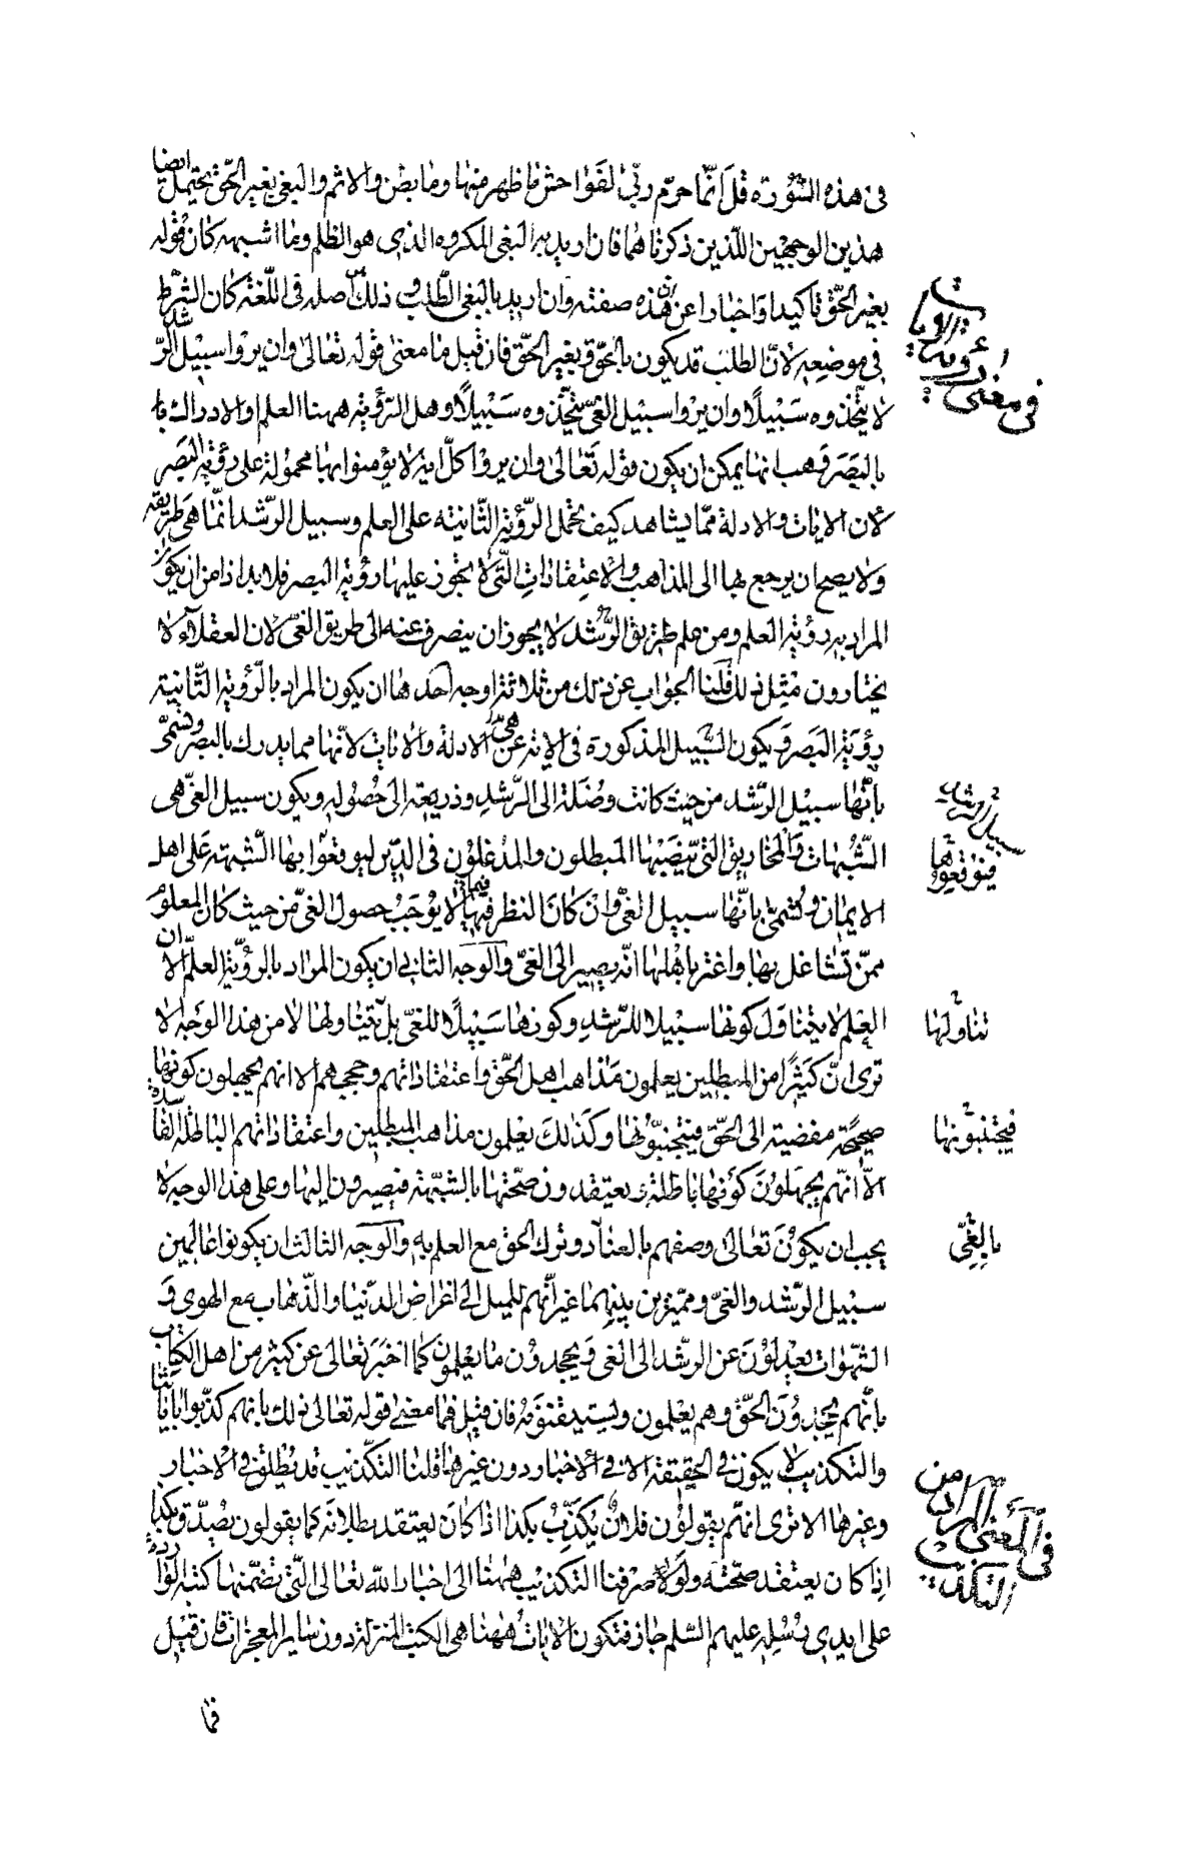 فى هذه السّورة قل انّما حرّم ربّى الفواحش ما ظهر منها وما بطن والاثم والبغى بغير الحّق يحتمل ايضا
هذين الوجهين اللّذين ذكرناهما فان اريد به البغى المكروه الذى هو الظلم وما اشبهه كان قوله
بغير الحّق تاكيدا واخبارا عن انّ هذه صفته وان اريد بالبغى الطّلب وذلك اصله فى اللّغة كان الشّرط
فى موضعه لانّ الطلب قد يكون بالحّق وبغير الحّق فان قيل ما معنى قوله تعالى وان يروا سبيل الرّشد
لا يتّخذوه سبيلًا وان يروا سبيل الغىّ يتّخذوه سبيلًا وهل الرّؤية ههنا العلم او الادراك با
بالبصر وهب انها يمكن ان يكون قوله تعالى وان يروا كلّ اية لا يؤمنوا بها محمولة على رؤية البصر
لان الايات والادلة ممّا يشاهد كيف يحمل الرّؤية الثّانيته على العلم وسبيل الرّشد انّما هى طريقة
ولا يصح ان يرجع بها الى المذاهب والاعتقادات الّتى لا يجوز عليها رؤية البصر فلا بد اذا من ان يكون
المراد به رؤية العلم ومن علم طريق الرّشد لا يجوز ان ينصرف عنه الى طريق الغىّ لان العقلاء لا
يختارون مثل ذلك قلنا الجواب عن ذلك من ثلاثة اوجه احدها ان يكون المراد بالرّؤية الثّانية
رؤية البصر ويكون السّبيل المذكورة فى الاية هى عن الادلة والايات لانّها مما يدرك بالبصر وتسمّى
بانّها سبيل الرّشد من حيث كانت وصلة الى الرّشد وذريعة الى حصوله ويكون سبيل الغىّ هى
الشّبهات والمخاريق الّتى ينصبها المبطلون والمدغلون فى الدّين ليوقعوا بها الشّبهة على اهل
الايمان وتسمّى بانّها سبيل الغىّ وان كان النظر فيها لا يوجب حصول الغىّ من حيث كان المعلوم
ممّن تشاغل بها واغتر باهلها انّه يصير الى الغىّ والوجه الثانى ان يكون المراد بالرّؤية العلم الّا ان
العلم لا يتناول كونها سبيلا للرّشد وكونها سبيلًا للغىّ بل يتناولها لا من هذا الوجه الا
ترى انّ كثيرًا من المبطلين يعلمون مذاهب اهل الحّق واعتقاداتهم وحججهم الا انهم يجهلون كونها
صحيحة مفضية الى الحّق فيتجنبّونها وكذلك يعلمون مذاهب المبطلين واعتقاداتهم الباطلة الفاسدة
الّا انّهم يجهلون كونها باطلة ويعتقدون صحّتها بالشّبهة فيصيرون اليها وعلى هذا الوجه لا
يجب ان يكون تعالى وصفهم بالعناد وترك الحّق مع العلم به والوجه الثالث ان يكونوا عالمين
سبيل الرّشد والغىّ ومميّزين بينهما غير انّهم للميل الى اغراض الدّنيا والذّهاب مع الهوى و
الشّهوات يعدلون عن الرشد الى الغى ويجحدون ما يعلمون كما اخبر تعالى عن كثير من اهل الكتاب
بانّهم يجحدون الحّق وهم يعلمون ويستيقنونه فان قيل فما معنى قوله تعالى ذلك بانهم كذّبوا باياتنا
والتكذيب لا يكون فى الحقيقة الا فى الاخبار دون غيرها قلنا التكذيب قد يطلق فى الاخبار
وغيرها الا ترى انهم يقولون فلان يكذّب بكذا اذا كان يعتقد بطلانه كما يقولون يصدّق بكذا
اذا كان يعتقد صحّته ولو لا صرفنا التكذيب ههنا الى اخبار الله تعالى الّتى تضمّنها كتبه الواردة
على ايدى رسله عليهم السّلم جاز فتكون الايات ههنا هى الكتب المنزلة دون ساير المعجزات فان قيل
فما
فى معنى رؤية الايات
سبيل الرّشاد
فيوقعوها
تناولها
فيجتنبونها
بالغىّ
فى المعنى المراد من
التكذيب